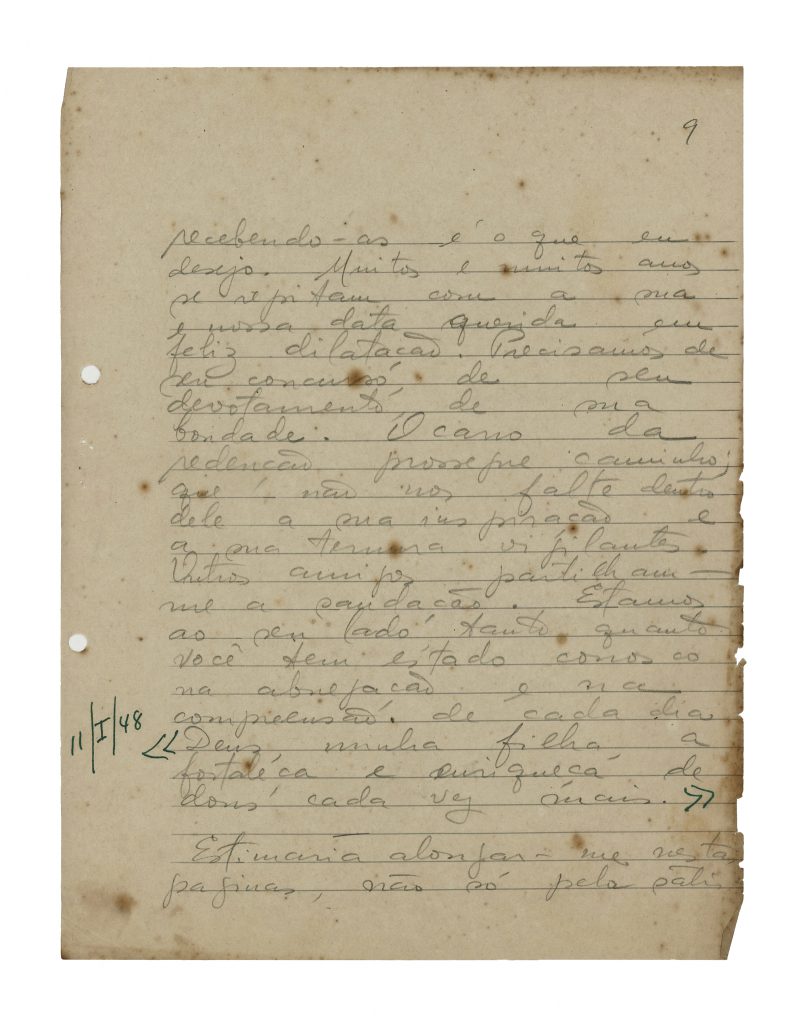 9
recebendo-as é o que eu
desejo. Muitos e muitos anos
se repitam com a sua
e nossa data querida em
feliz dilatação. Precisamos de
seu concurso, de seu
devotamento, de sua
bondade. O carro da
redenção prossegue caminho;
que não nos falte dentro
dele a sua inspiração e
a sua ternura vigilantes.
Outros amigos partilham-
me a saudação. Estamos
ao seu lado, tanto quanto
você tem estado conosco
na abnegação e na
compreensão de cada dia.
11/I/48 << Deus, minha filha a
fortaleça e enriqueça de
dons cada vez mais. >>
Estimaria alongar-me nestas
paginas, não só pela satis